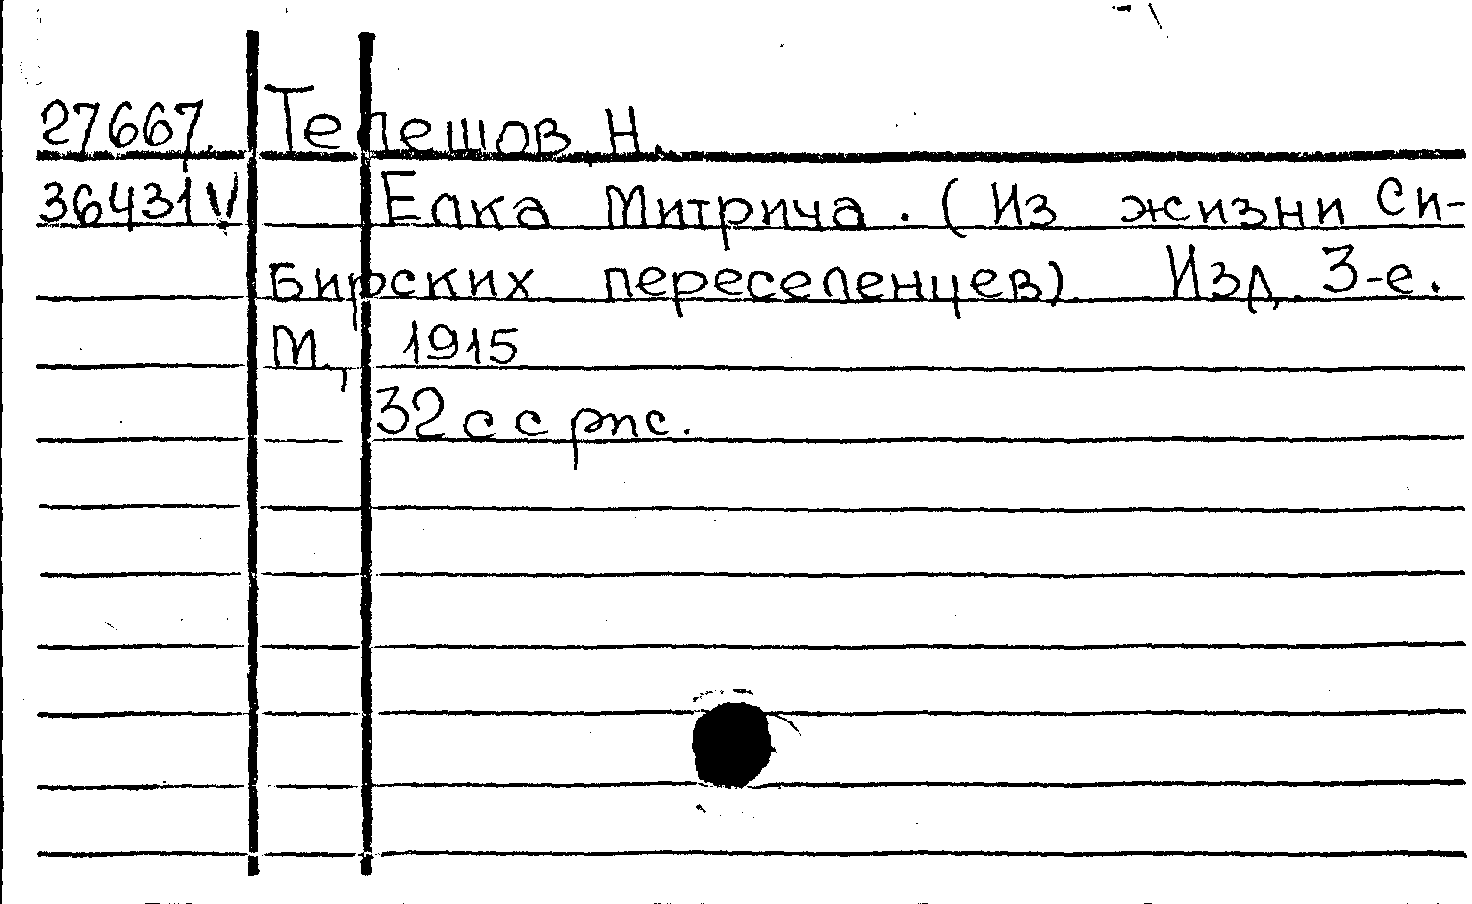 27667. Телешов Н.
36431 V Елка Митрича. (Из жизни си-
бирских переселенцев) Изд. 3-е.
М., 1915
32 с с рис.